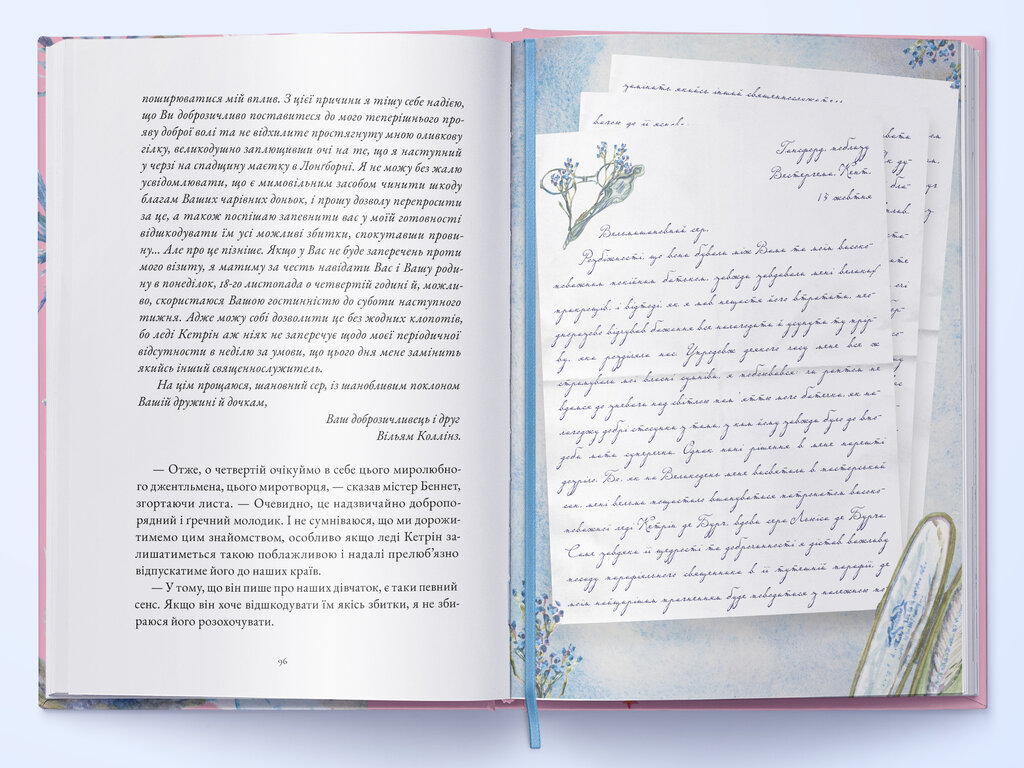 поширюватися мій вплив. З цієї причини я тішу себе надією,
що Ви доброзичливо поставитеся до мого теперішнього про-
яву доброї волі та не відхилите простягнуту мною оливкову
гілку, великодушно заплющивши очі на те, що я наступний
у черзі на спадщину маєтку в Лонґборні. Я не можу без жалю
усвідомлювати, що є мимовільним засобом чинити шкоду
благам Ваших чарівних доньок, і прошу дозволу перепросити
за це, а також поспішаю запевнити вас у моїй готовності
відшкодувати їм усі можливі збитки, спокутавши прови-
ну... Але про це пізніше. Якщо у Вас не буде заперечень проти
мого візиту, я матиму за честь навідати Вас і Вашу роди-
ну в понеділок, 18-го листопада о четвертій годині й, можли-
во, скористаюся Вашою гостинністю до суботи наступного
тижня. Адже можу собі дозволити це без жодних клопотів,
бо леді Кетрін аж ніяк не заперечує щодо моєї періодичної
відсутности в неділю за умови, що цього дня мене замінить
якийсь інший священнослужитель.
На цім прощаюся, шановний сер, із шанобливим поклоном
Вашій дружині й дочкам,
Ваш доброзичливець і друг
Вільям Коллінз.
— Отже, о четвертій очікуймо в себе цього миролюбно-
го джентльмена, цього миротворця, — сказав містер Беннет,
згортаючи листа. — Очевидно, це надзвичайно добропо-
рядний і ґречний молодик. І не сумніваюся, що ми дорожи-
тимемо цим знайомством, особливо якщо леді Кетрін за-
лишатиметься такою поблажливою і надалі прелюб’язно
відпускатиме його до наших країв.
— У тому, що він пише про наших дівчаток, є таки певний
сенс. Якщо він хоче відшкодувати їм якісь збитки, я не зби-
раюся його розохочувати.
96
замінить якийсь інший священнослужит...
Гансфорд, поблизу
Вестергема, Кент.
15 жовтня
Вельмишановний сер,
Розбіжності, що вони бували між Вами та моїм високо-
поважним покійним батьком, завжди завдавали мені великих
прикрощів, і відтоді, як я мав нещастя його втратити, нео-
дноразово відчував бажання все налагодити й усунути ту прір-
ву, яка розділяла нас. Упродовж деякого часу мене все ж
стримували мої власні сумніви, я побоювався, чи раптом не
вдамся до зневаги над світлою пам'яттю мого батечка, як на-
лагоджу добрі стосунки з тими, з ким йому завжди було до впо-
доби мати суперечки. Однак нині рішення в мене нарешті
дозріло. Бо, як на Великдень мене висвятили в пасторський
сан, мені вельми пощастило вшануватися патронатом високо-
поважної леді Кетрін де Бурґ, вдови сера Льюїса де Бурґа.
Саме завдяки її щедрості та доброчинності я дістав важливу
посаду парафіяльного священника в її тутешній парафії, де
моїм найщирішим прагненням буде поводитися з належною по